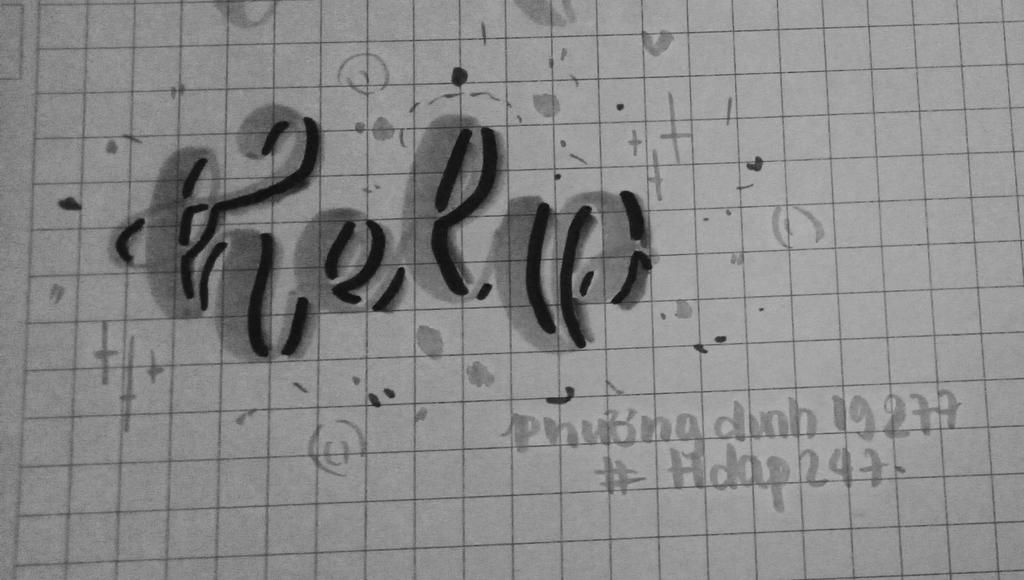 Hello
phương dinh 19277
# Hdap247.